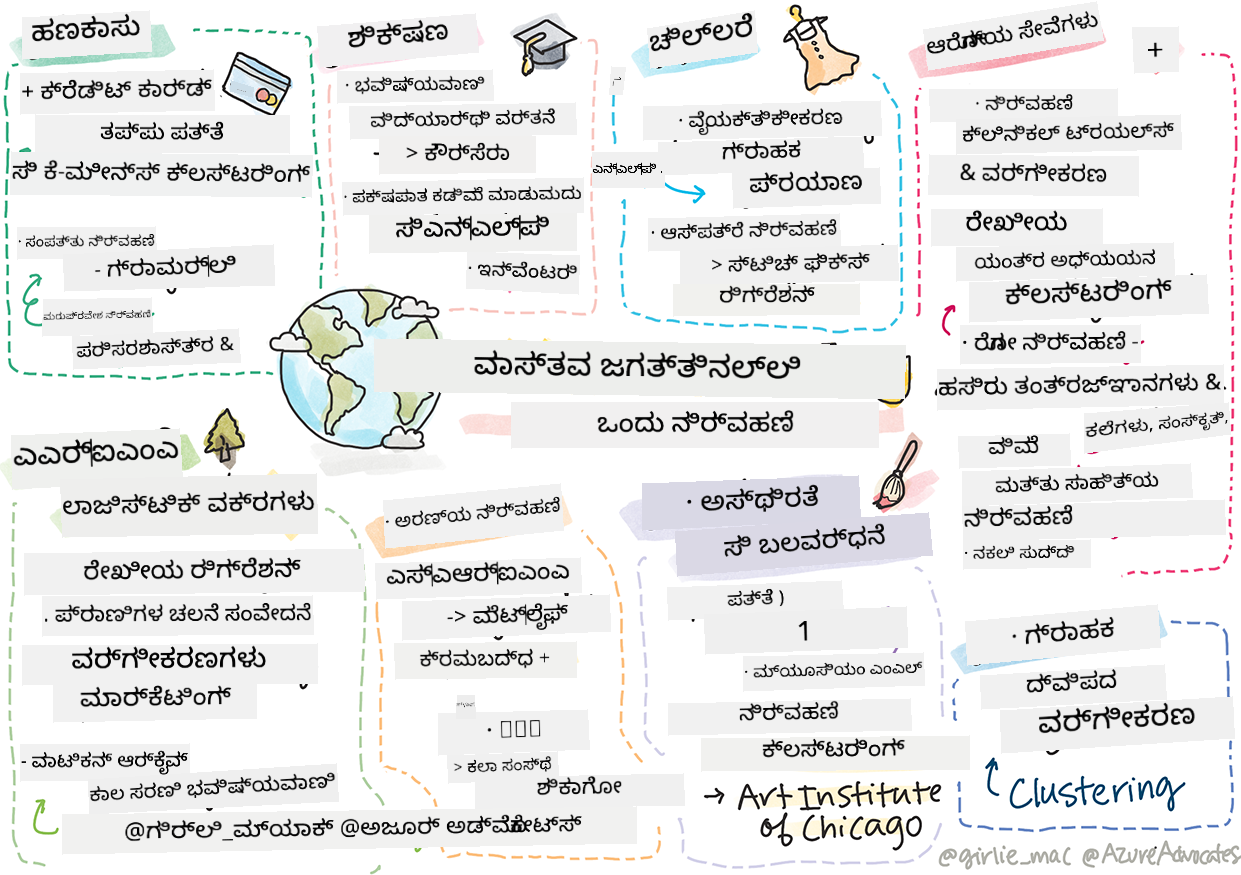 ಹಣಕಾಸು
+ ಕ್ರೆಡಿಟ್ ಕಾರ್ಡ್
ತಪ್ಪು ಪತ್ತೆ
ಸಿ ಕೆ-ಮೀನ್ಸ್ ಕ್ಲಸ್ಟರಿಂಗ್
· ಸಂಪತ್ತು ನಿರ್ವಹಣೆ
- ಗ್ರಾಮರ್ಲಿ
ಮರುಪ್ರವೇಶ ನಿರ್ವಹಣೆ,
ಪರಿಸರಶಾಸ್ತ್ರ &
ಶಿಕ್ಷಣ
· ಭವಿಷ್ಯವಾಣಿ
ವಿದ್ಯಾರ್ಥಿ ವರ್ತನೆ
- > ಕೌರ್ಸೆರಾ
· ಪಕ್ಷಪಾತ ಕಡಿಮೆ ಮಾಡುಮದು
ಸಿಎನ್ಎಲ್ಪಿ
· ಇನ್ವೆಂಟರಿ
ಚಿಲ್ಲರೆ
· ವೈಯಕ್ತಿಕೀಕರಣ
ಗ್ರಾಹಕ
ಎನ್ಎಲ್ಪಿ .
ಪ್ರಯಾಣ
· ಆಸ್ಪತ್ರೆ ನಿರ್ವಹಣೆ
> ಸ್ಟಿಚ್ ಫಿಕ್ಸ್
ರಿಗ್ರೆಶನ್
ಆರೋಗ್ಯ ಸೇವೆಗಳು
+
· ನಿರ್ವಹಣೆ
ಕ್ಲಿನಿಕಲ್ ಟ್ರಯಲ್ಸ್
& ವರ್ಗೀಕರಣ
ರೇಖೀಯ
ಯಂತ್ರ ಅಧ್ಯಯನ
ಕ್ಲಸ್ಟರಿಂಗ್
· ರೋಗ ನಿರ್ವಹಣೆ -
ಹಸಿರು ತಂತ್ರಜ್ಞಾನಗಳು &.
ಕಲೆಗಳು, ಸಂಸ್ಕೃತಿ,
ವಿಮೆ
ಮತ್ತು ಸಾಹಿತ್ಯ
ನಿರ್ವಹಣೆ
· ನಕಲಿ ಸುದ್ದಿ
ವಾಸ್ತವ ಜಗತ್ತಿನಲ್ಲಿ
ಒಂದು ನಿರ್ವಹಣೆ
ಎಎರ್ಐಎಂಎ
ಲಾಜಿಸ್ಟಿಕ್ ವಕ್ರಗಳು
ರೇಖೀಯ ರಿಗ್ರೆಶನ್
. ಪ್ರಾಣಿಗಳ ಚಲನೆ ಸಂವೇದನೆ
ವರ್ಗೀಕರಣಗಳು
ಮಾರ್ಕೆಟಿಂಗ್
- ವಾಟಿಕನ್ ಆರ್ಕೈವ್
ಕಾಲ ಸರಣಿ ಭವಿಷ್ಯವಾಣಿ
@ಗಿರ್ಲಿ_ಮ್ಯಾಕ್ @ಅಜೂರ್
· ಅರಣ್ಯ ನಿರ್ವಹಣೆ
ಎಸ್ಎಆರ್ಐಎಂಎ
-> ಮೆಟ್ಲೈಫ್
ಕ್ರಮಬದ್ಧ +
> ಕಲಾ ಸಂಸ್ಥೆ
ಶಿಕಾಗೋ
· ಅಸ್ಥಿರತೆ
ಸಿ ಬಲವರ್ಧನೆ
ಪತ್ತೆ )
1
· ಮ್ಯೂಸಿಯಂ ಎಂಎಲ್
ನಿರ್ವಹಣೆ
ಕ್ಲಸ್ಟರಿಂಗ್
→ Art Institute
of Chicago
· ಗ್ರಾಹಕ
ದ್ವಿಪದ
ವರ್ಗೀಕರಣ
Clustering
@girlie_mac @AzureAdvocates